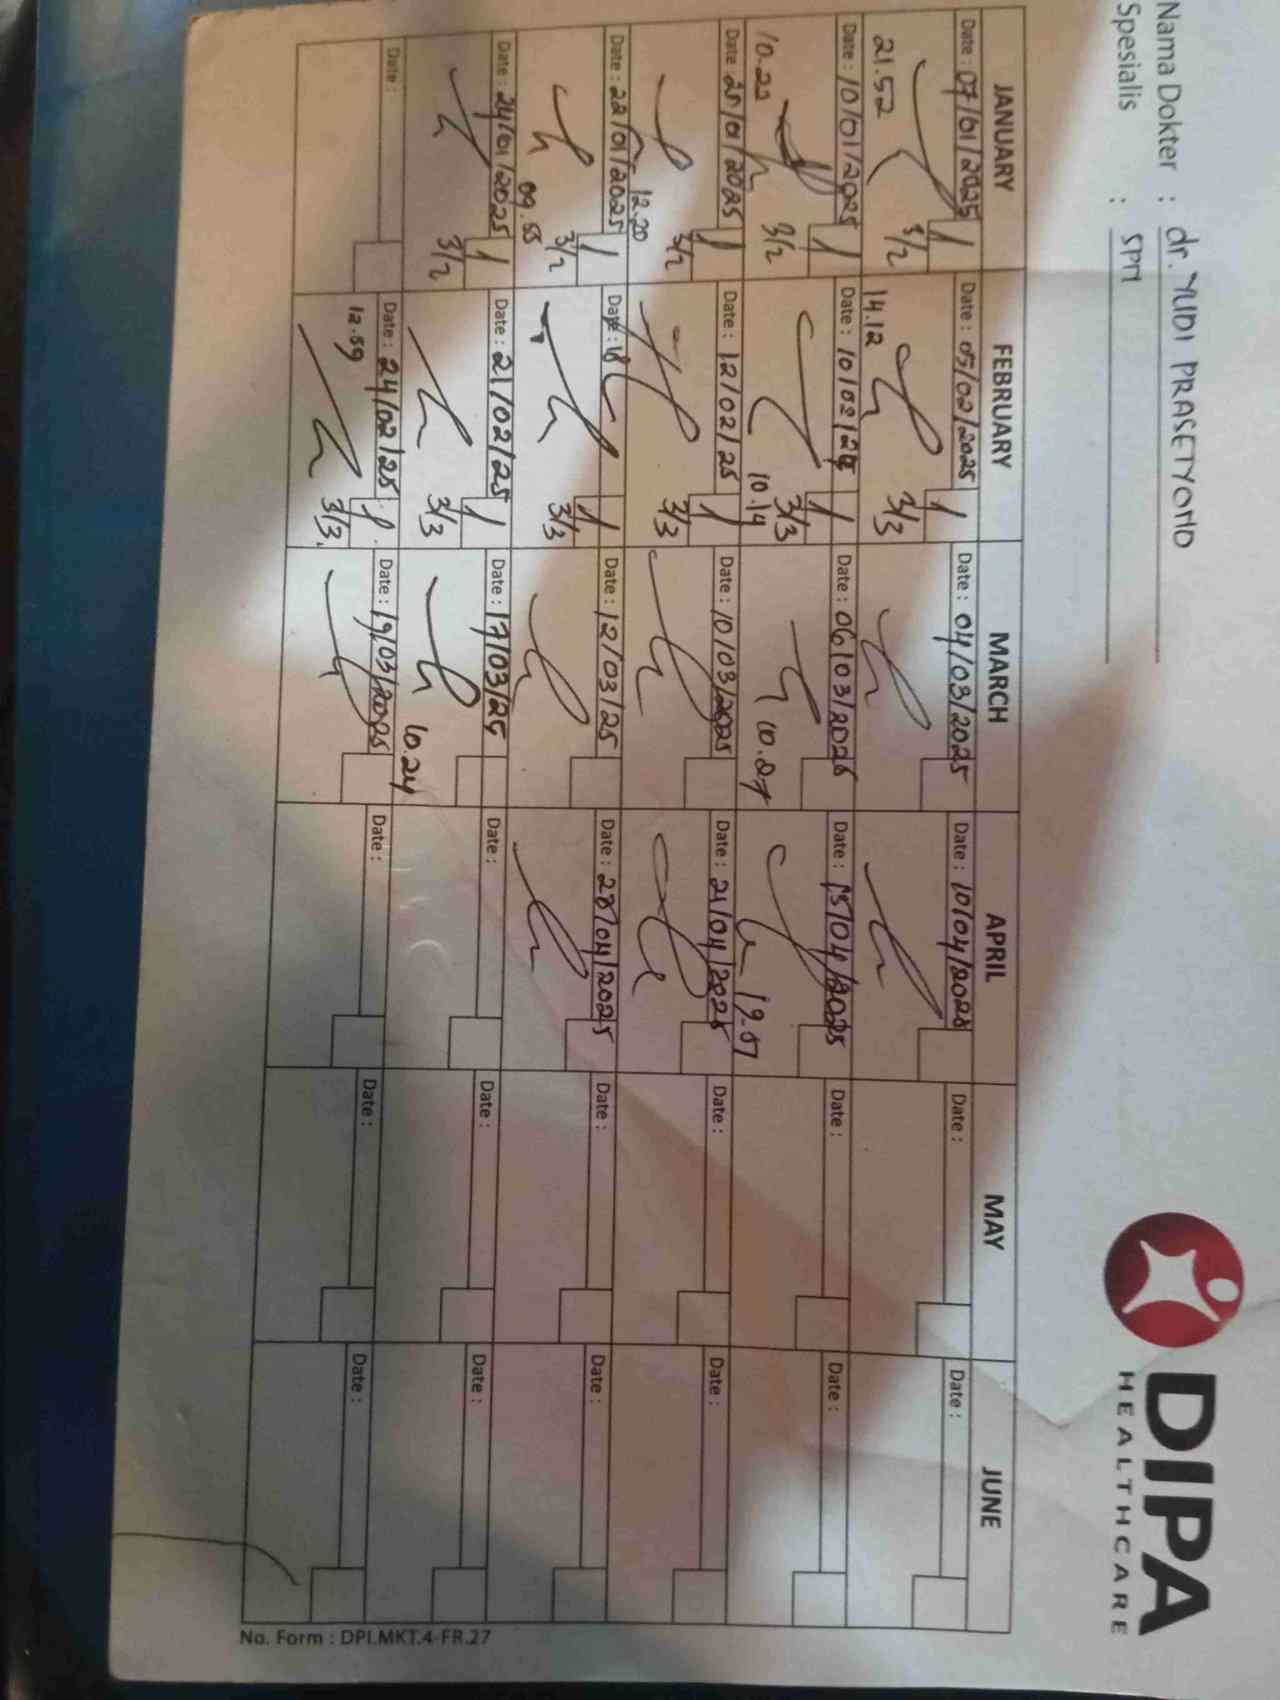 DIPA
HEALTHCARE
Nama Dokter : dr. YUDI PRASETYONO
Spesialis : SPM
JANUARY FEBRUARY MARCH APRIL MAY JUNE
Date : 07/01/2025 1 Date : 05/02/2025 1 Date : 04/03/2025 Date : 10/04/2025 Date : Date :
21.52 3/2 14.12 3/3
Date : 10/01/2025 1 Date : 10/02/25 1 Date : 06/03/2025 Date : 15/04/2025 Date : Date :
10.22 3/2 3/3 10.14 10.27 19.07
Date 20/01/2025 1 Date : 12/02/25 1 Date : 10/03/2025 Date : 21/04/2025 Date : Date :
12.20 3/2 3/3
Date : 22/01/2025 1 Date : 18 1 Date : 12/03/25 Date : 28/04/2025 Date : Date :
09.55 3/2 3/3
Date : 24/01/2025 1 Date : 21/02/25 1 Date : 17/03/25 Date : Date : Date :
3/2 3/3 10.24
Date : Date : 24/02/25 1 Date : 19/03/2025 Date : Date : Date :
12.59 3/3
No. Form : DPI.MKT.4-FR.27